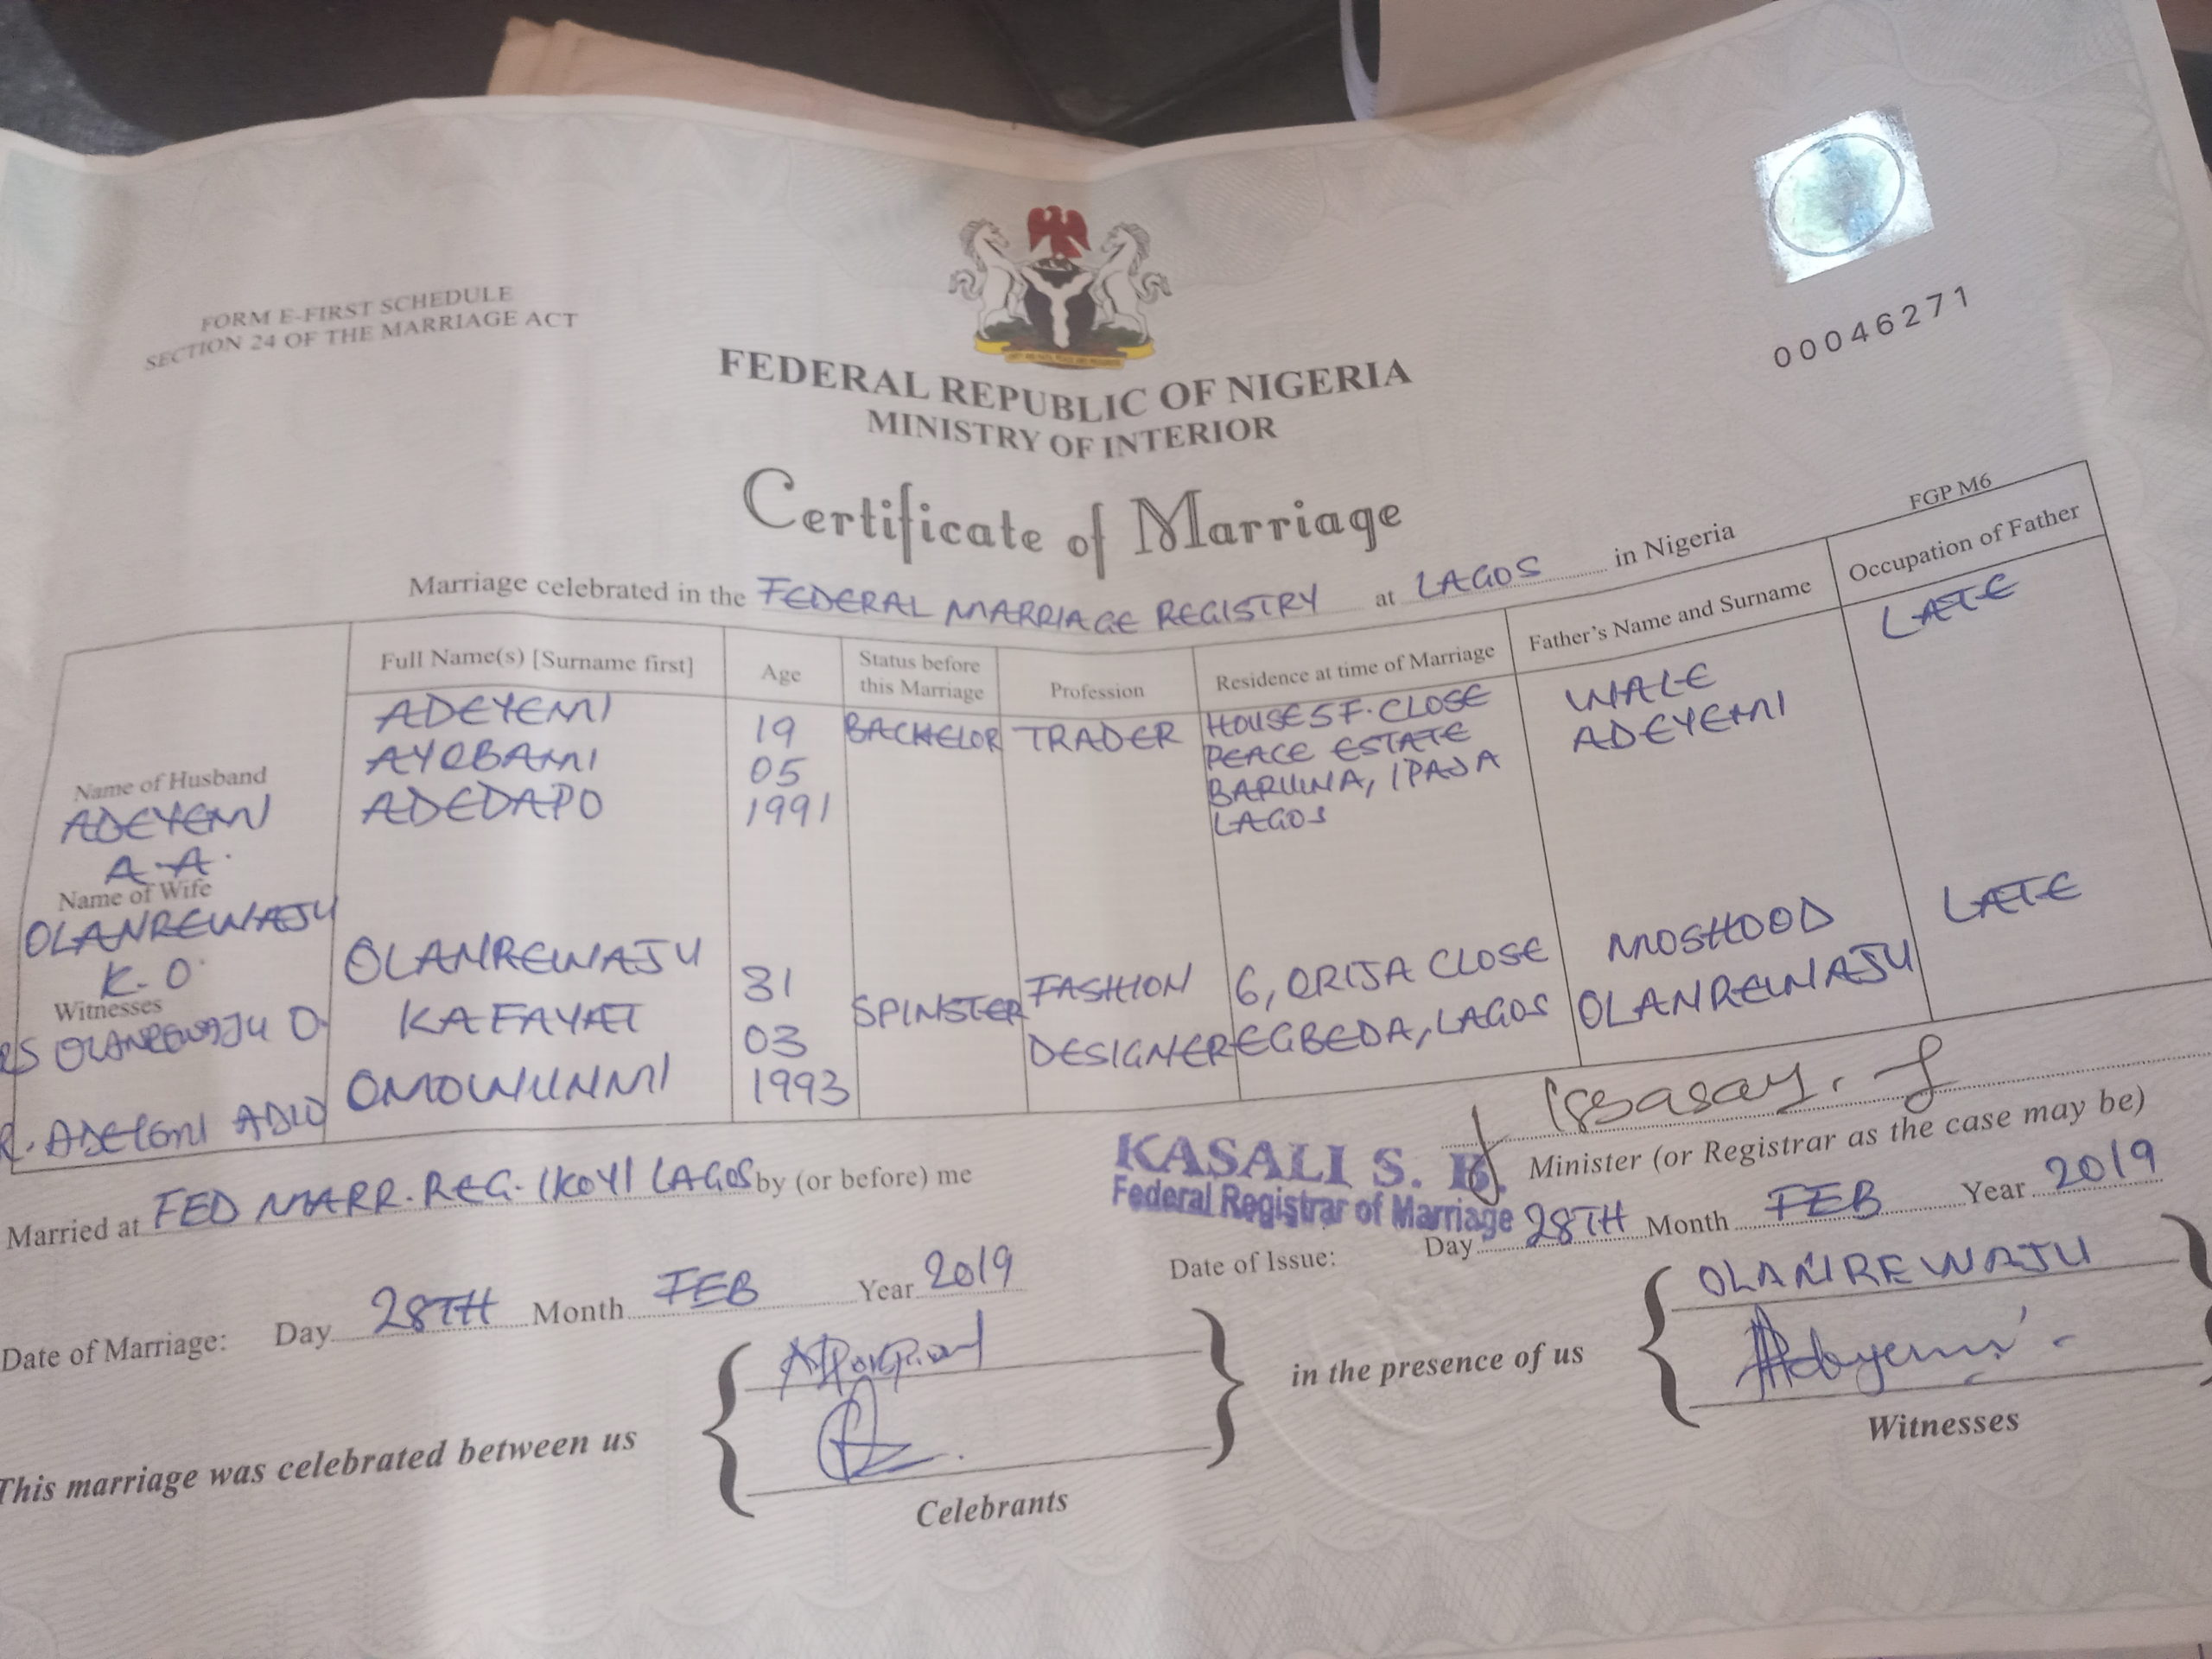 FORM E-FIRST SCHEDULE
SECTION 24 OF THE MARRIAGE ACT
00046271
FEDERAL REPUBLIC OF NIGERIA
MINISTRY OF INTERIOR
Certificate of Marriage
FGP M6
Marriage celebrated in the FEDERAL MARRIAGE REGISTRY at LAGOS in Nigeria
Full Name(s) [Surname first] Age Status before this Marriage Profession Residence at time of Marriage Father's Name and Surname Occupation of Father
Name of Husband
ADEYEMI
A.A.
ADEYEMI
AYOBAMI
ADEDAPO
19
05
1991
BACHELOR
TRADER
HOUSE 5 F. CLOSE
PEACE ESTATE
BARUWA, IPAJA
LAGOS
WALE
ADEYEMI
LATE
Name of Wife
OLANREWAJU
K.O
OLANREWAJU
KAFAYAT
OMOWUNMI
31
03
1993
SPINSTER
FASHION
DESIGNER
6, ORIJA CLOSE
EGBEDA, LAGOS
MOSHOOD
OLANREWAJU
LATE
Witnesses
OLANREWAJU O.
ADEYEMI
Married at FED MARR. REG. IKOYI LAGOS by (or before) me
KASALI S.
Federal Registrar of Marriage
Minister (or Registrar as the case may be)
Date of Marriage: Day 28TH Month FEB Year 2019
Date of Issue: Day 28TH Month FEB Year 2019
This marriage was celebrated between us
Celebrants
in the presence of us
OLANREWAJU
Witnesses